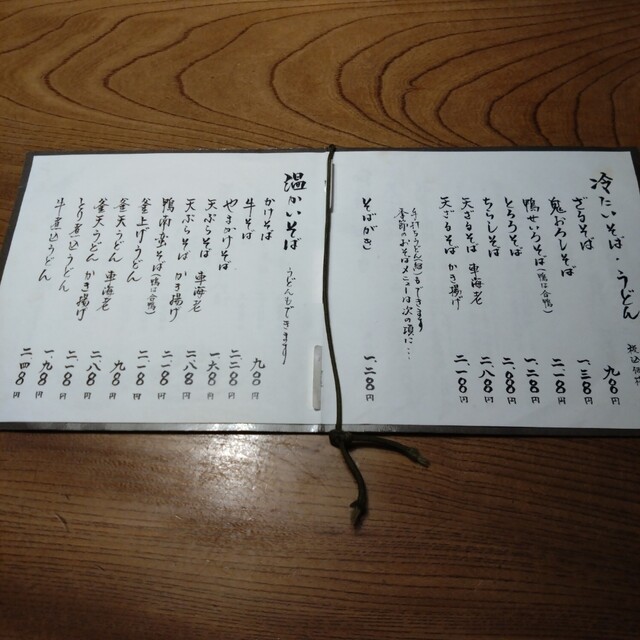 冷たいそば・うどん 税込価格
ざるそば 九〇〇円
鬼おろしそば 一、三〇〇円
鴨せいろそば(鴨は合鴨) 二、一〇〇円
とろろそば 一、二〇〇円
ちらしそば 二、〇〇〇円
天ざるそば 車海老 二、八〇〇円
天ざるそば かき揚げ 二、一〇〇円
手打ちうどん(細)もできます
季節のおそばメニューは次の頃に…
そばがき 一、二〇〇円
温かいそば うどんもできます
かけそば 九〇〇円
牛そば 二、二〇〇円
やまかけそば 一、六〇〇円
天ぷらそば 車海老 二、八〇〇円
天ぷらそば かき揚げ 二、一〇〇円
鴨南蛮そば(鴨は合鴨) 二、一〇〇円
釜上げうどん 九〇〇円
釜天うどん 車海老 二、八〇〇円
釜天うどん かき揚げ 二、一〇〇円
とり煮込うどん 一、九〇〇円
牛煮込うどん 二、四〇〇円